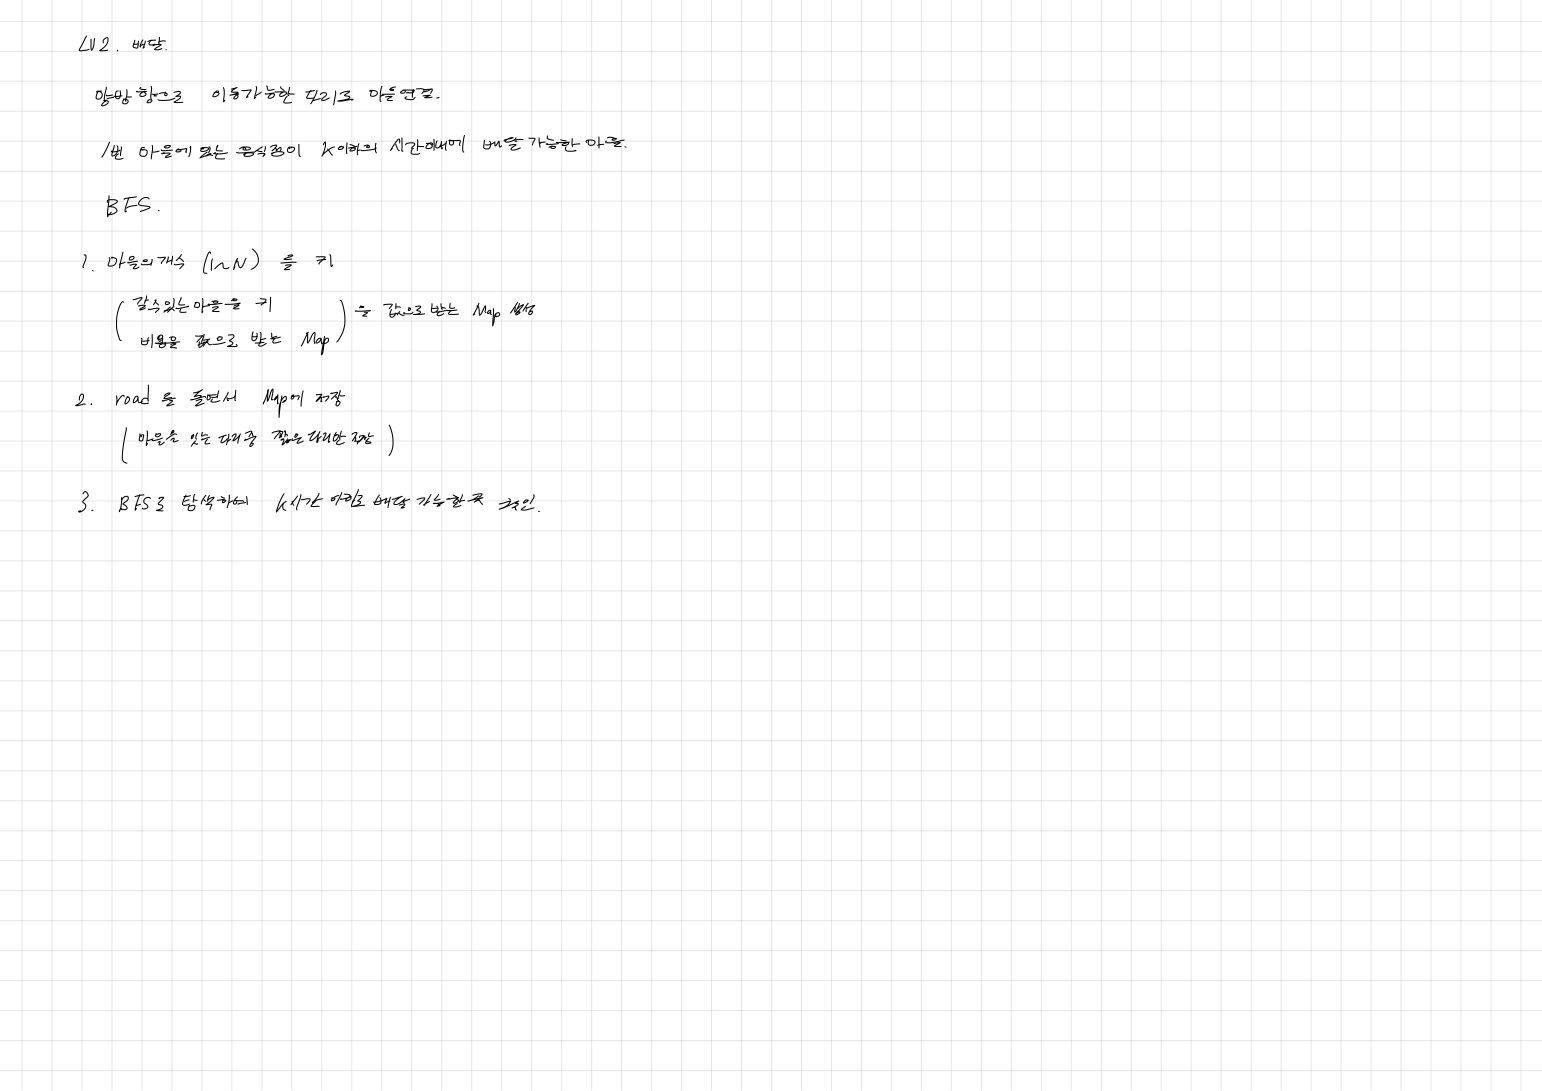 LV2. 배달.
양방향으로 이동가능한 다리로 마을연결.
1번 마을에 있는 음식점이 K이하의 시간이내에 배달 가능한 마을.
BFS.
1. 마을의개수 (1~N) 을 키
(갈수있는마을을 키
비용을 값으로 받는 Map) 을 값으로 받는 Map 생성
2. road 를 돌면서 Map에 저장
(마을을 잇는 다리중 짧은 다리만 저장)
3. BFS로 탐색하여 K시간 이하로 배달 가능한곳 확인.